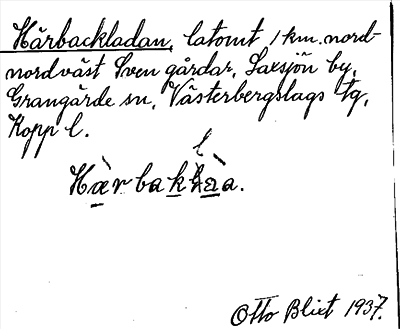 Hårbackladan, latomt 1 km. nord-
nordväst Sven gårdar, Saxsjön by,
Grangärde sn, Västerbergslags tg,
Kopp l.
l
Hæ̀rbakk̀aa.
Otto Blixt 1937.